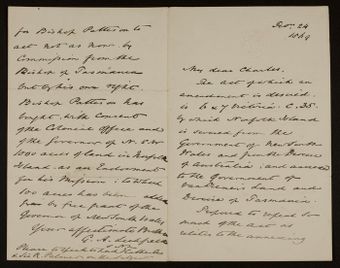 Feby. 24
1869
My dear Charles,
The act of which an
amendment is desired
is 6 & 7 Victoria. C. 35.
by which Norfolk Island
is severed from the
Government of New South
Wales and from the Diocese
of Australia and annexed
to the Government of
Van Diemen's Land and
Diocese of Tasmania.
Proposed to repeal so
much of the Act as
relates to the annexing
for Bishop Patteson to
act not as now by
Commission from the
Bishop of Tasmania
but by his own right.
Bishop Patteson has
bought with consent
of the Colonial Office and
of the Governor of N. S. W
1000 acres of land in Norfolk
Island as an Endowment
for his Mission. to which
100 acres has been added
free by free grant of the
Governor of New South Wales
Your affectionate Brother
G. A. Lichfield
Please to speak to
& Sir R. Palmer on the subject